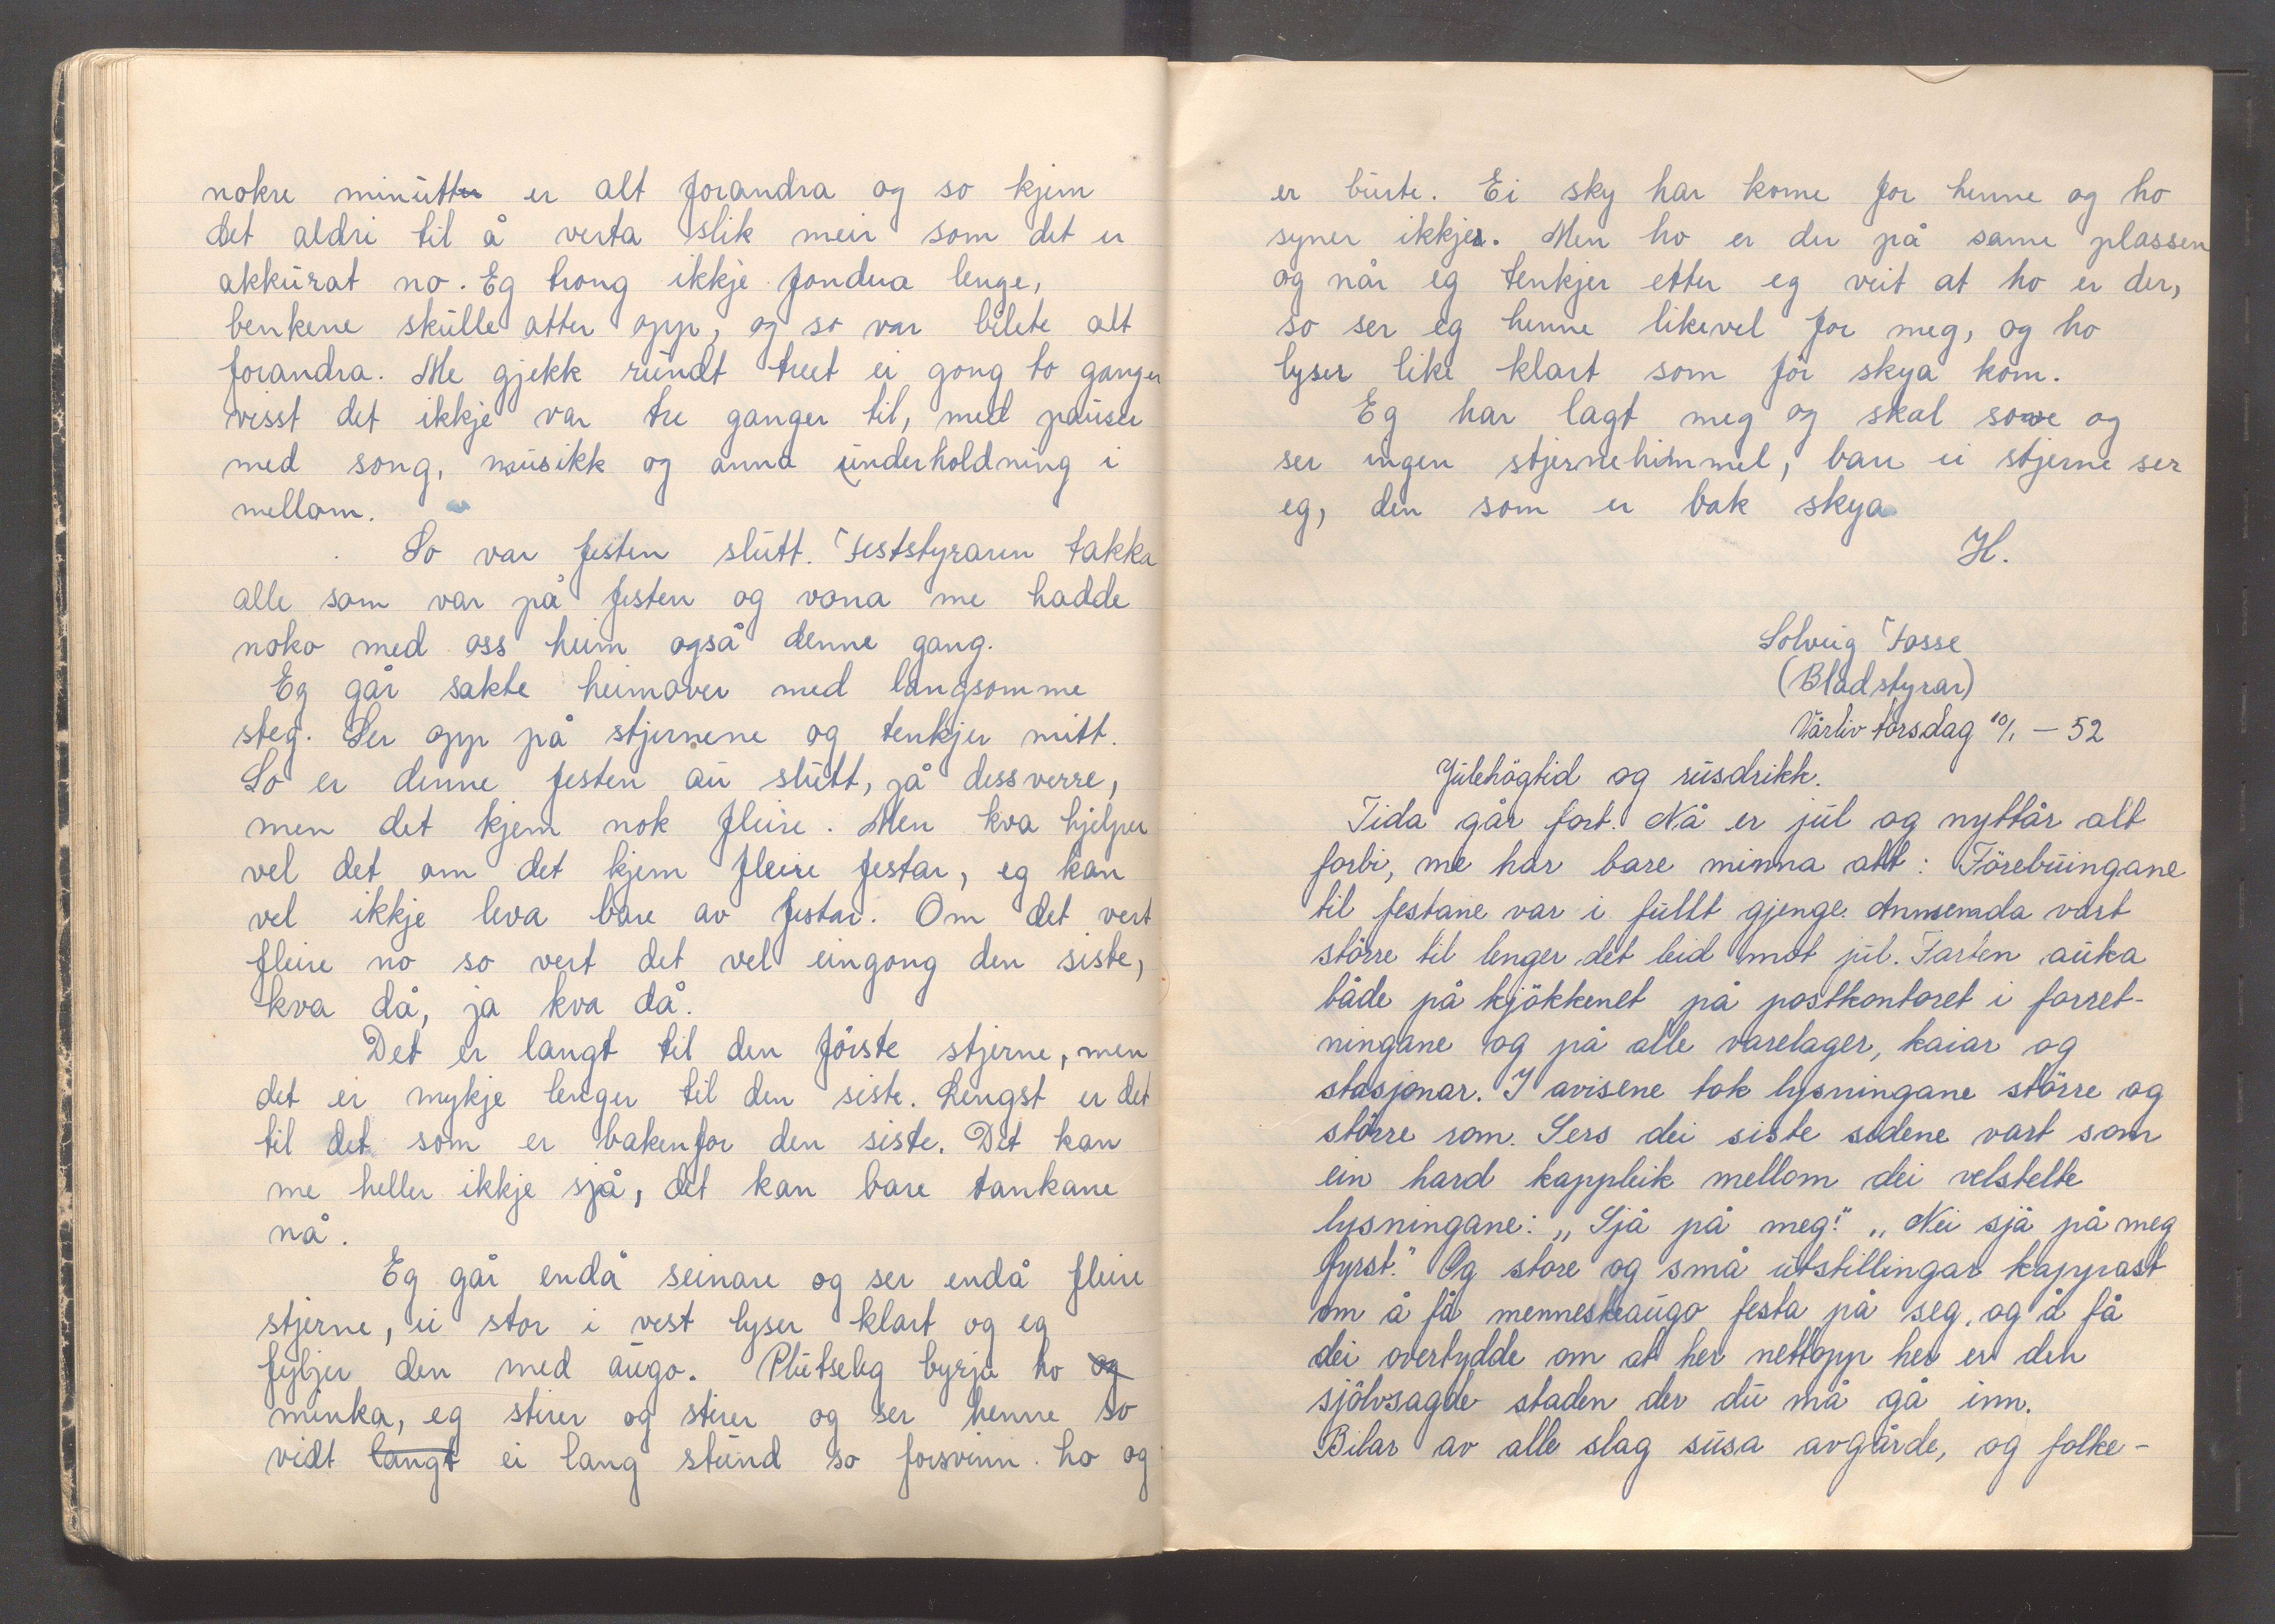 nokre minutter er alt forandra og so kjem
det aldri til å verta slik meir som det er
akkurat no. Eg trong ikkje fondera lenge,
benkene skulle atter opp, og so var bilete alt
forandra. Me gjekk rundt treet ei gong to ganger
visst det ikkje var tre ganger til, med pauser
med song, musikk og anna underholdning i
mellom.
So var festen slutt. Feststyraren takka
alle som var på festen og vona me hadde
noko med oss heim også denne gang.
Eg går sakte heimover med langsomme
steg. Ser opp på stjernene og tenkjer mitt.
So er denne festen au slutt, ja dessverre,
men det kjem nok fleire. Men kva hjelper
vel det om det kjem fleire festar, eg kan
vel ikkje leva bare av festar. Om det vert
fleire no so vert det vel eingong den siste,
kva då, ja kva då.
Det er langt til den förste stjerne, men
det er mykje lenger til den siste. Lengst er det
til det som er bakenfor den siste. Det kan
me heller ikkje sjå, det kan bare tankane
nå.
Eg går endå seinare og ser endå fleire
stjerne, ei stor i vest lyser klart og eg
fyljer den med augo. Plutseleg byrja ho og
minka, eg stirer og stirer og ser henne so
vidt langt ei lang stund so forsvinn ho og
er burte. Ei sky har kome for henne og ho
syner ikkje. Men ho er der på same plassen
og når eg tenkjer etter eg veit at ho er der,
so ser eg henne likevel for meg, og ho
lyser like klart som för skya kom.
Eg har lagt meg og skal sove og
ser ingen stjernehimmel, bare ei stjerne ser
eg, den som er bak skya
H.
Solveig Fosse
(Bladstyrar)
Vårliv torsdag 10/1 – 52
Julehögtid og rusdrikk.
Tida går fort. Nå er jul og nyttår alt
forbi, me har bare minna att: Förebuingane
til festane var i fullt gjenge. Annsemda vart
större til lenger det leid mot jul. Farten auka
både på kjökkenet på postkontoret i forret-
ningane og på alle varelager, kaiar og
stasjonar. I avisene tok lysningane större og
större rom. Sers dei siste sidene vart som
ein hard kappleik mellom dei velstelte
lysningane: „Sjå på meg!" „Nei sjå på meg
fyrst." Og store og små utstillingar kappast
om å få menneskeaugo festa på seg, og å få
dei overtydde om at her nettopp her er den
sjölvsagde staden der du må gå inn.
Bilar av alle slag susa avgårde, og folke-